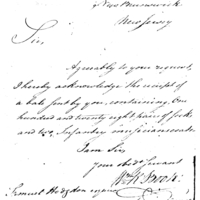 New Brunswick
New Jersey
Sir,
Agreeably to your request,
I hereby acknowledge the receipt of
a bale sent by you, containing One
hundred and twenty eight pair of socks
and two Infantry musicians coats.
I am Sir
your Obdt Servant
Samuel Hodgdon esquire